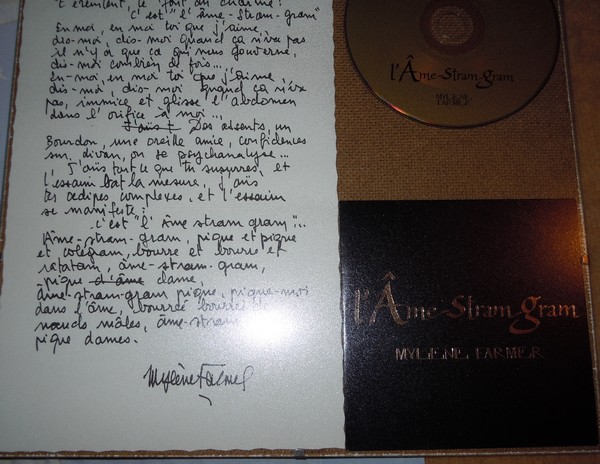 c'est "l'âme-stram-gram"
En moi, en moi toi que j'aime,
dis-moi, dis-moi quand ça n'va pas
il n'y a que ça qui nous gouverne,
dis-moi combien de fois...
En-moi, en moi toi que j'aime,
dis-moi, dis-moi quand ça n'va
pas, immisce et glisse l'abdomen
dans l'orifice à moi...
J'ouïs! Des absents, un
Bourdon, une oreille amie, confidences
sur divan, on se psychanalyse...
J'ouïs tout ce que tu susurres, et
l'essaim bat la mesure, j'ouïs
tes oedipes complexes, et l'essaim
se manifeste:
c'est "l'Âme stram gram"...
Âme-stram-gram, pique et pique
et colégram, bourre et bourre et
ratatam, âme-stram-gram,
pique d'âme dame,
âme-stram-gram pique, pique-moi
dans l'âme, bourrée bourrée de
noeuds mâles, âme-stram
pique dames.
Mylène Farmer
l'Âme-Stram-gram
MYLENE
FARMER
l'Âme-Stram-gram
MYLENE FARMER